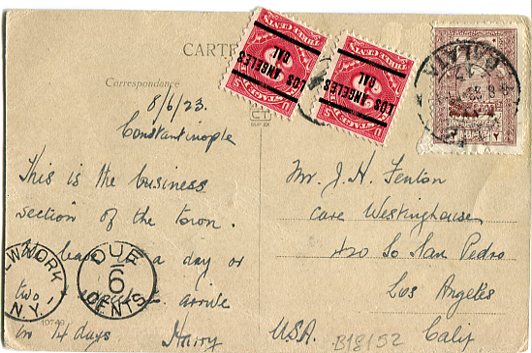 CARTE
Correspondence
8/6/23.
Constantinople
This is the business
section of the town.
I leave in a day or
two & expect to arrive
in 14 days Harry
NEW YORK
N.Y.
DUE
6
CENTS
LOS ANGELES
CAL
LOS ANGELES
CAL
GALATA
Mr. J. H. Fenton
Care Westinghouse
420 So San Pedro
Los Angeles
USA. Calif
B18152